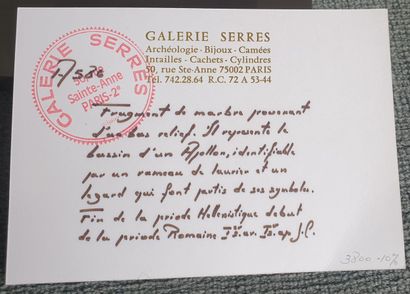 GALERIE SERRES
Archéologie - Bijoux - Camées
Intailles - Cachets - Cylindres
50, rue Ste-Anne 75002 PARIS
Tél. 742.28.64 R.C. 72 A 53-44
GALERIE SERRES
Sainte-Anne
PARIS-2e
Fragment de marbre provenant
d'un bas relief. Il represente le
bassin d'un Apollon, identifiable
par un rameau de laurier et un
legard qui font partis de ses symboles.
Fin de la priode Hellenistique debut
de la priode Romaine Is. av. Is. ap. J.C.
3800 -10%